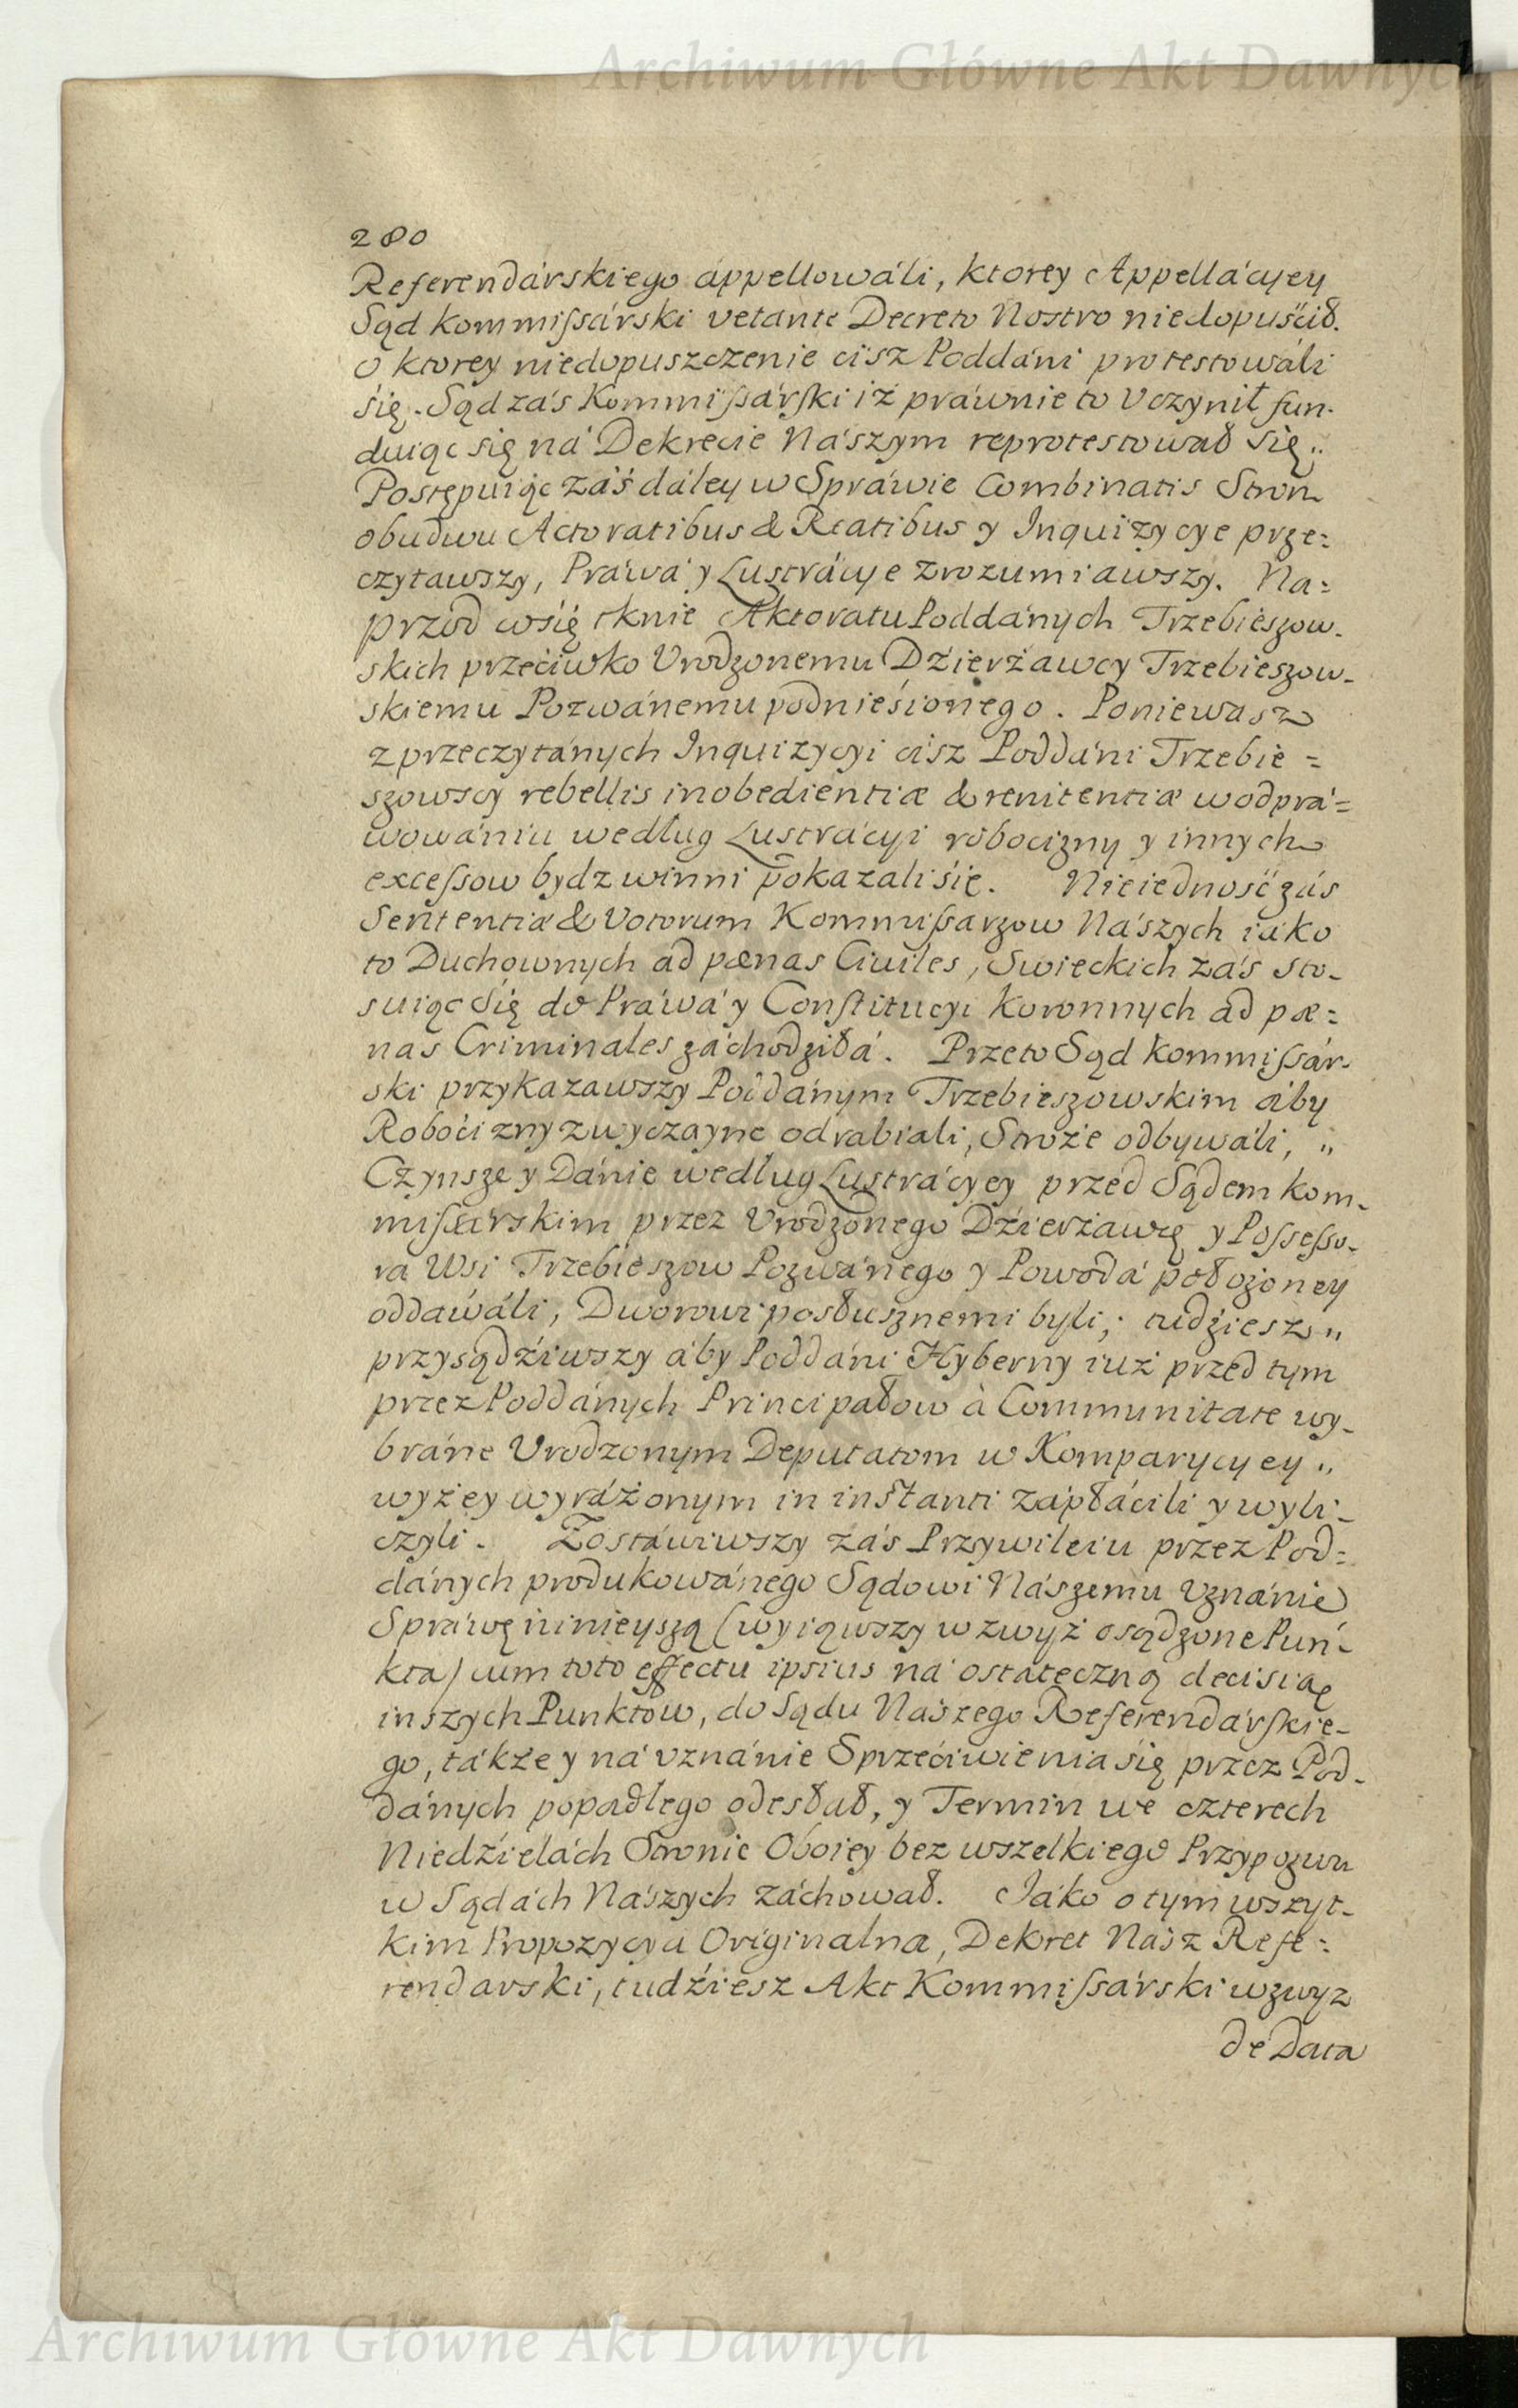 Archiwum Główne Akt Dawnych
280
Referendárskiego áppellowáli, ktorey Appellácyey
Sąd kommiſsárski vetante Decreto Nostro niedopuśćił.
o ktorey niedopuszczenie cisz Poddáni protestowáli
się. Sąd zás Kommiſsárſki iż práwnie to Vczynił fun-
duiąc się ná Dekrecie Nászym reprotestował się.
Postępuiąc záś dáley w Spráwie Combinatis Stron
obudwu Actoratibus & Reatibus y Inquizycye prze=
czytawszy, Práwá y Lustrácye zrozumiawszy. Na=
przod wsię tknie Aktoratu Poddánych Trzebieszow-
skich przećiwko Vrodzonemu Dźierżawcy Trzebieszow-
skiemu Pozwánemu podnieśionego. Poniewasz
z przeczytánych Inquizycyi cisz Poddáni Trzebie=
szowscy rebellis inobedientiæ & renitentiæ w odprá=
wowániu według Lustrácyi robocizny y innych
exceſsow bydz winni pokazali śię. Nieiedność zás
Sententiæ & Votorum Kommiſsarzow Nászych iáko
to Duchownych ad pœnas Civiles, Swieckich zás sto-
suiąc Się do Práwá y Conſtitucyi Koronnych ad pœ=
nas Criminales záchodziłá. Przeto Sąd Kommiſsár-
ski przykazawszy Poddánym Trzebieszowskim áby
Roboćizny zwyczayne odrabiali, Stroże odbywáli, „
Czynsze y Dánie według Lustrácyey przed Sądem kom-
miſsárskim przez Vrodzonego Dźierżawcę y Poſseſso-
ra Wsi Trzebieszow Pozwánego y Powodá położoney
oddawáli, Dworowi posłusznemi byli; tudziesz „
przysądźiwszy áby Poddáni Hyberny iuż przed tym
przez Poddánych Principałow à Communitate wy-
bráne Vrodzonym Deputatom w Komparycyey „
wyżey wyráżonym in inſtanti zápłácili y wyli-
czyli. Zostáwiwszy zás Przywileiu przez Pod=
dánych produkowánego Sądowi Nászemu Vznánie
Spráwę ninieyszą (wyiąwszy wzwyż osądzone Pun-
kta) cum toto effectu ipsius ná ostáteczną decisią
inszych Punktow, do Sądu Nászego Referendárſkie-
go, tákże y ná vznánie Sprzećiwienia się przez Pod-
dánych popadłego odesłał, y Termin we czterech
Niedźielách Stronie Oboiey bez wszelkiego Przypozwu
w Sądách Nászych záchował. Jáko o tym wszyt-
kim Propozycya Originalna, Dekret Nász Refe=
rendarski, tudźiesz Akt Kommiſsárski wzwyz
de Data
Archiwum Główne Akt Dawnych